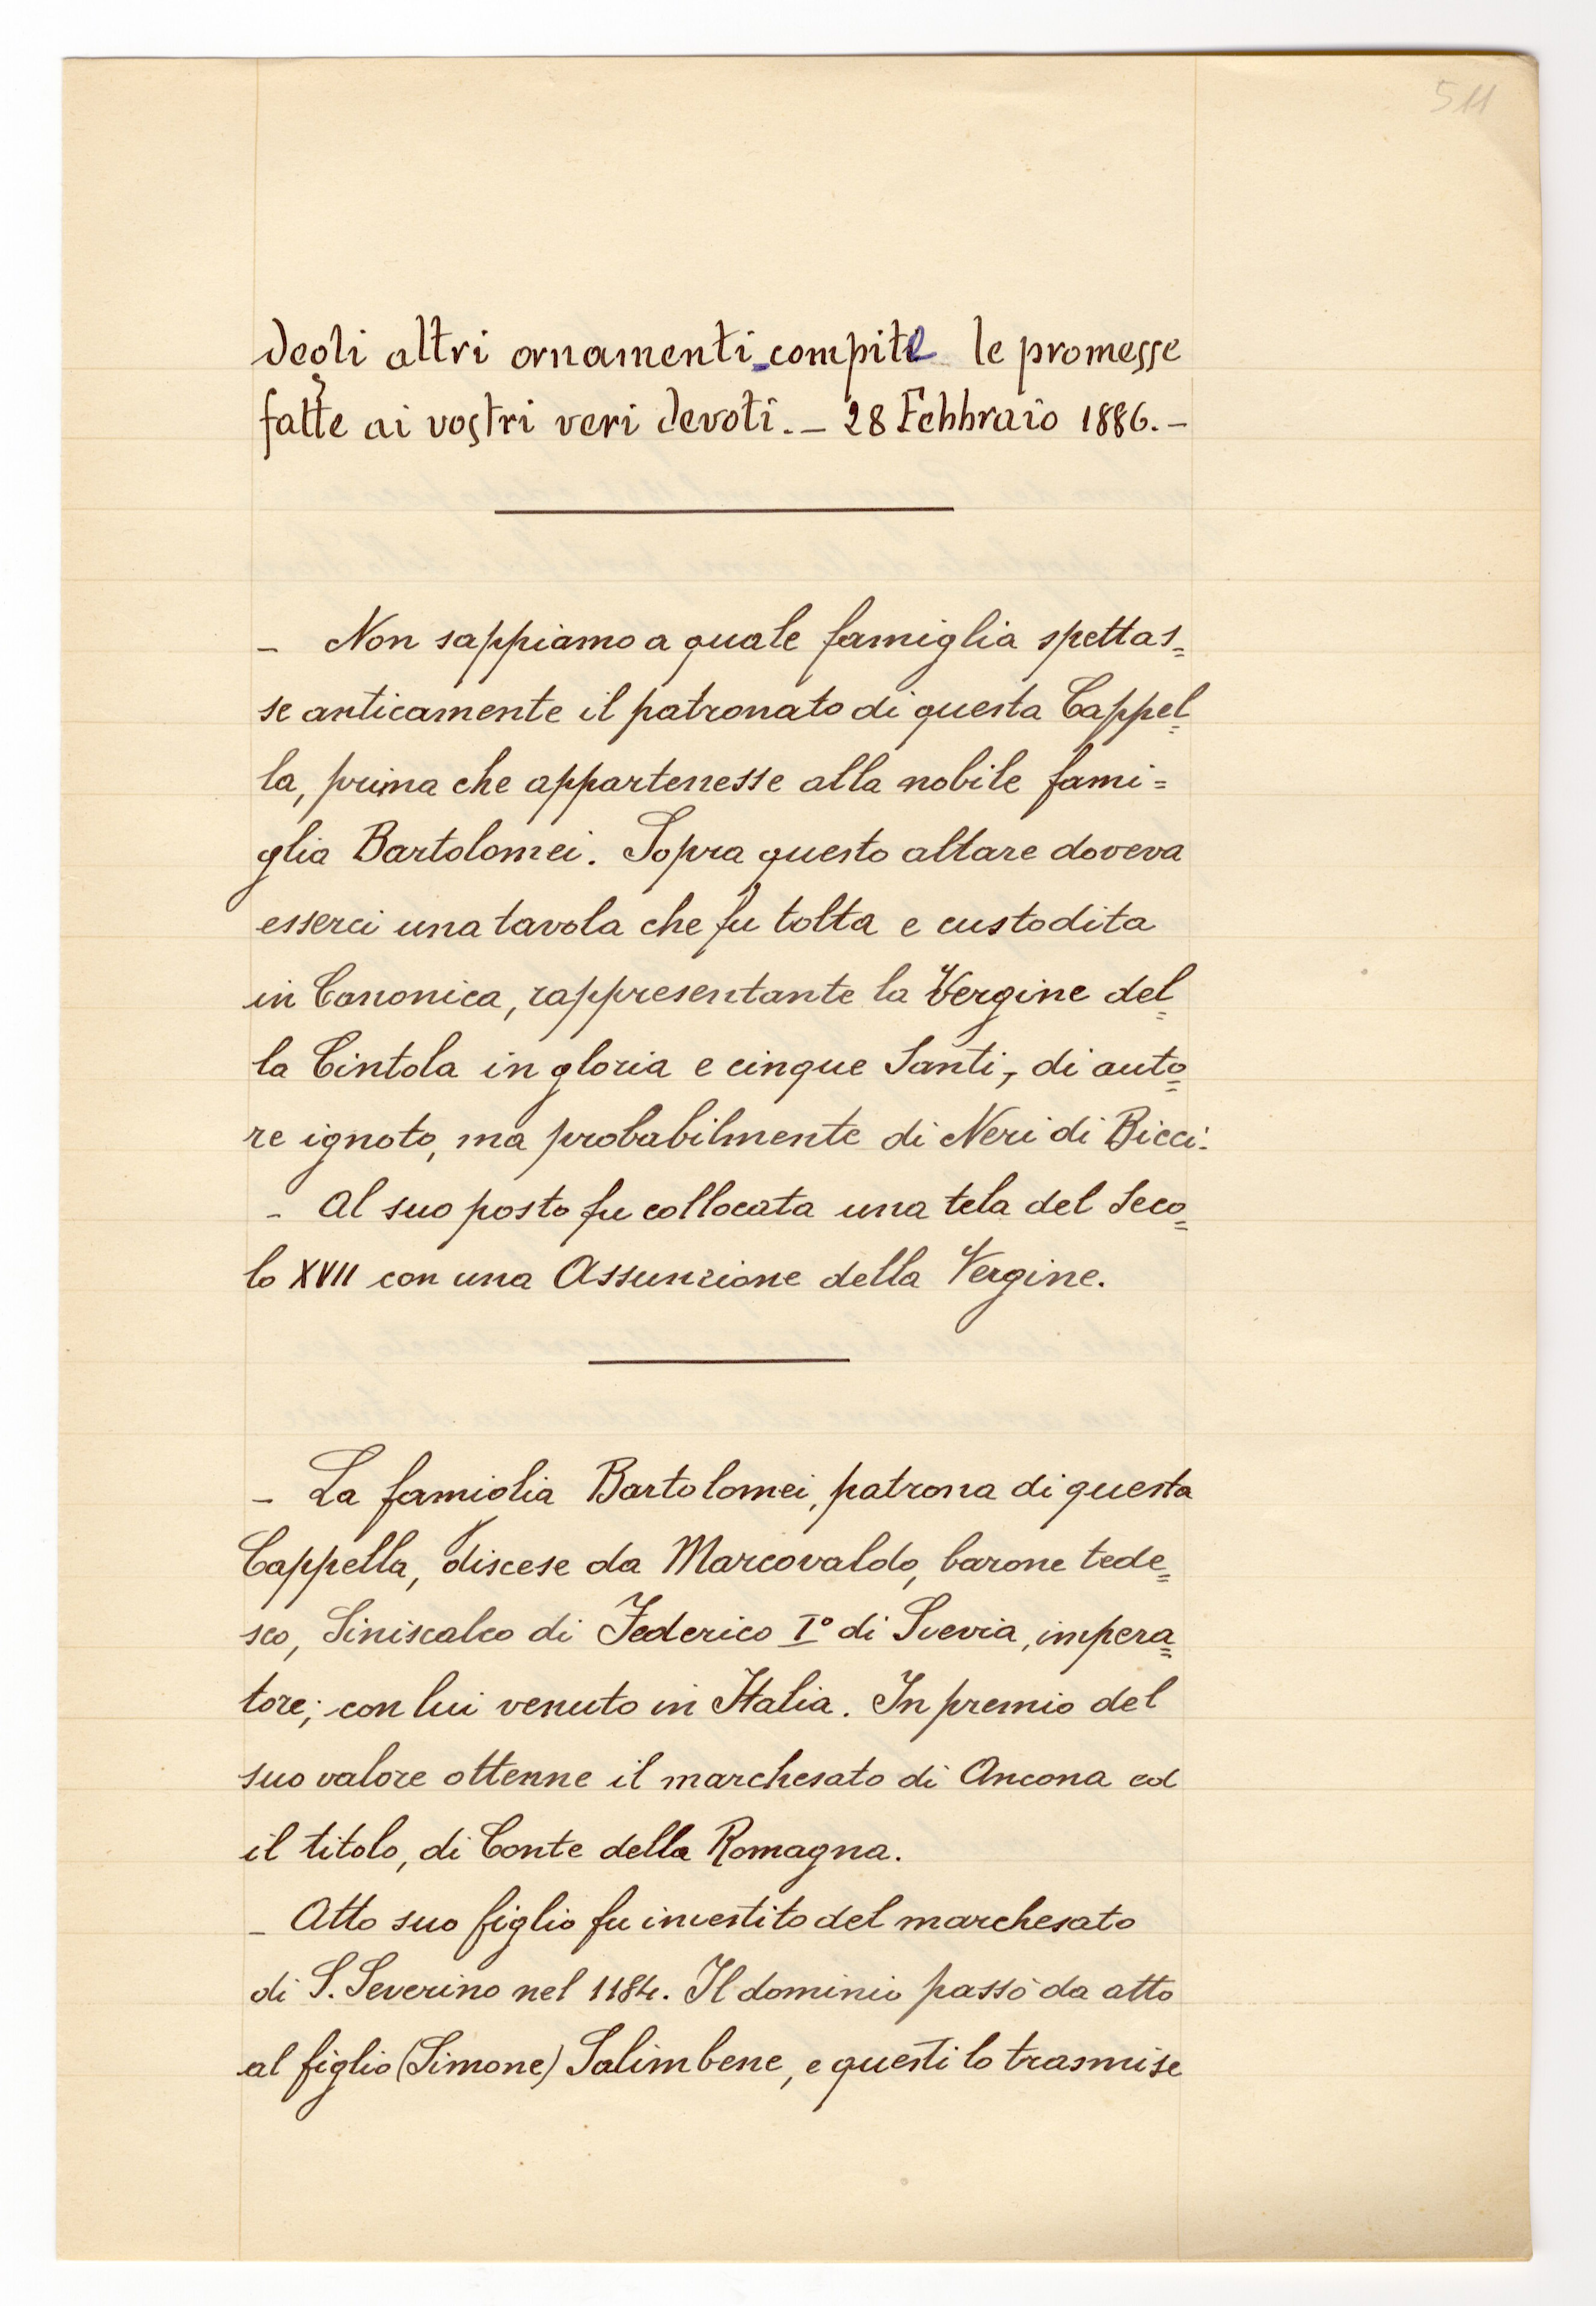 511
degli altri ornamenti compite le promesse
fatte ai vostri veri devoti. _ 28 Febbraio 1886. _
_ Non sappiamo a quale famiglia spettas=
se anticamente il patronato di questa Cappel=
la, prima che appartenesse alla nobile fami=
glia Bartolomei. Sopra questo altare doveva
esserci una tavola che fu tolta e custodita
in Canonica, rappresentante la Vergine del=
la Cintola in gloria e cinque Santi, di auto=
re ignoto, ma probabilmente di Neri di Bicci.
_ Al suo posto fu collocata una tela del Seco=
lo XVII con una Assunzione della Vergine.
_ La famiglia Bartolomei, patrona di questa
Cappella, discese da Marcovaldo, barone tede=
sco, Siniscalco di Federico I° di Svevia, impera=
tore; con lui venuto in Italia. In premio del
suo valore ottenne il marchesato di Ancona ed
il titolo, di Conte della Romagna.
_ Atto suo figlio fu investito del marchesato
di S. Severino nel 1184. Il dominio passò da Atto
al figlio (Simone) Salimbene, e questi lo trasmise